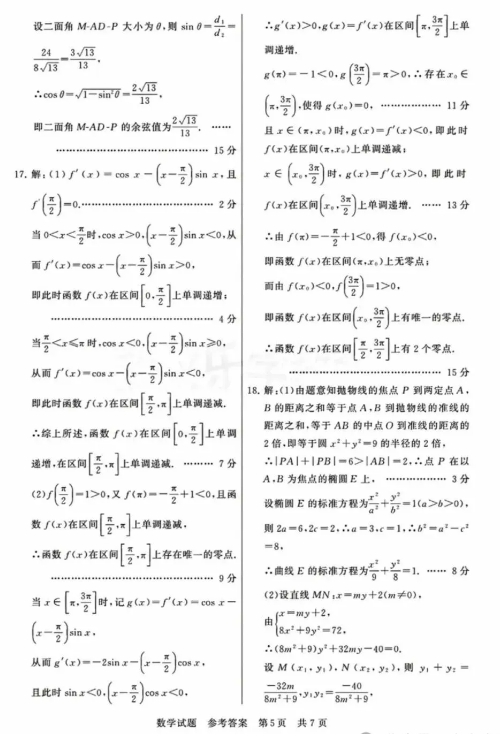 设二面角 M-AD-P 大小为 θ,则 sin θ=d₁/d₂=
24/(8√13)=3√13/13,
∴cos θ=√(1-sin²θ)=2√13/13,
即二面角 M-AD-P 的余弦值为2√13/13. ……
……………………………………… 15 分
17. 解:(1)f′(x)=cos x-(x-π/2)sin x,且
f′(π/2)=0.……………………………… 2 分
当 0<x<π/2时,cos x>0,(x-π/2)sin x<0,从
而 f′(x)=cos x-(x-π/2)sin x>0,
即此时函数 f(x)在区间[0,π/2]上单调递增;
……………………………………… 4 分
当π/2<x≤π 时,cos x<0,(x-π/2)sin x≥0,
从而 f′(x)=cos x-(x-π/2)sin x<0,
即此时函数 f(x)在区间[π/2,π]上单调递减.
∴综上所述,函数 f(x)在区间[0,π/2]上单调
递增,在区间[π/2,π]上单调递减. …… 7 分
(2)f(π/2)=1>0,又 f(π)=-π/2+1<0,且函
数 f(x)在区间[π/2,π]上单调递减,
∴函数 f(x)在区间[π/2,π]上存在唯一的零点.
……………………………………… 9 分
当 x∈[π,3π/2]时,记 g(x)=f′(x)=cos x-
(x-π/2)sin x,
从而 g′(x)=-2sin x-(x-π/2)cos x,
且此时 sin x<0,(x-π/2)cos x<0,
∴g′(x)>0,g(x)=f′(x)在区间[π,3π/2]上单
调递增.
g(π)=-1<0,g(3π/2)=π>0,∴存在 x₀∈
(π,3π/2),使得 g(x₀)=0, ……………… 11 分
且 x∈(π,x₀)时,g(x)=f′(x)<0,即此时
f(x)在区间(π,x₀)上单调递减;
x∈(x₀,3π/2)时,g(x)=f′(x)>0,即此时
f(x)在区间(x₀,3π/2)上单调递增. …… 13 分
∴由 f(π)=-π/2+1<0,得 f(x₀)<0,
即函数 f(x)在区间(π,x₀)上无零点;
而由 f(x₀)<0,f(3π/2)=1>0,
即函数 f(x)在区间(x₀,3π/2)上有唯一的零点.
∴函数 f(x)在区间[π/2,3π/2]上有 2 个零点.
……………………………………… 15 分
18. 解:(1)由题意知抛物线的焦点 P 到两定点 A,
B 的距离之和等于点 A,B 到抛物线的准线的
距离之和,等于 AB 的中点 O 到准线的距离的
2 倍,即等于圆 x²+y²=9 的半径的 2 倍,
∴|PA|+|PB|=6>|AB|=2,∴点 P 在以
A,B 为焦点的椭圆 E 上, ……………… 3 分
设椭圆 E 的标准方程为x²/a²+y²/b²=1(a>b>0),
则 2a=6,2c=2,∴a=3,c=1,∴b²=a²-c²
=8,
∴曲线 E 的标准方程为x²/9+y²/8=1. …… 8 分
(2)设直线 MN:x=my+2(m≠0),
由{x=my+2,
8x²+9y²=72,
∴(8m²+9)y²+32my-40=0.
设 M(x₁,y₁),N(x₂,y₂),则 y₁+y₂=
-32m/(8m²+9),y₁y₂=-40/(8m²+9),
数学试题 参考答案 第5页 共7页